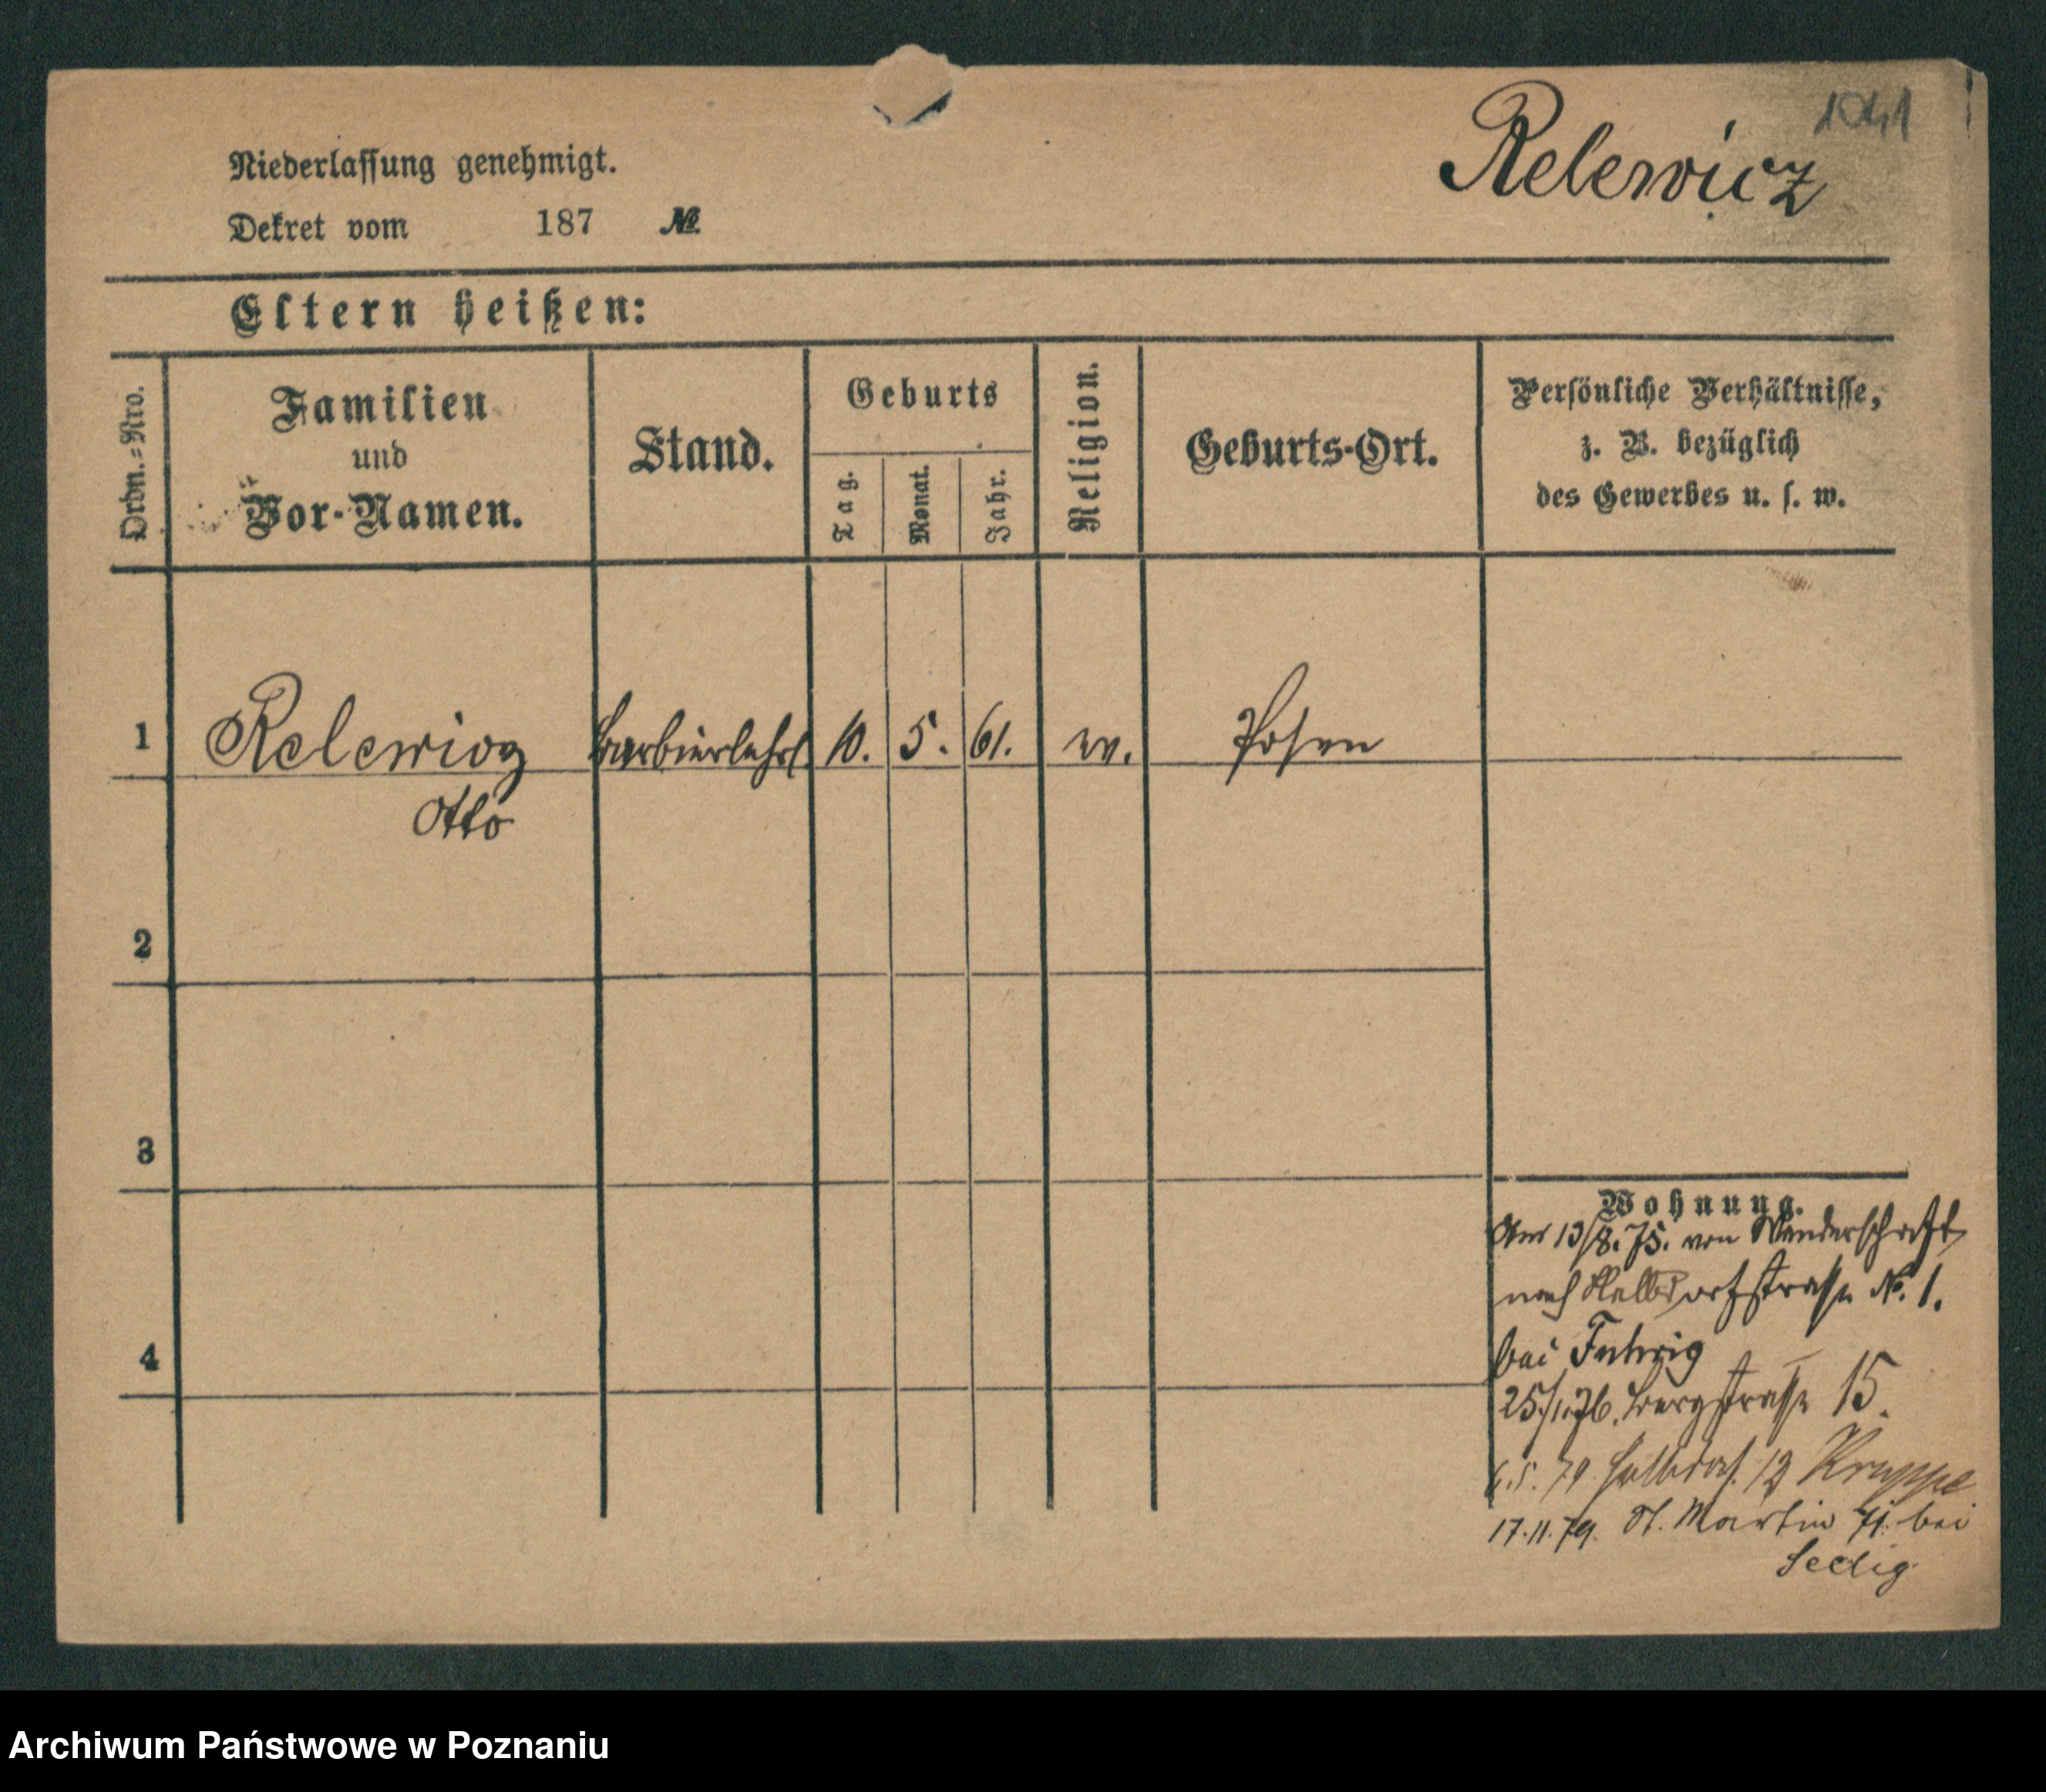 1041
Relewicz
Niederlassung genehmigt.
Dekret vom 187 №
Eltern heißen:
Ordn.=Nro.
Familien
und
Vor-Namen.
Stand.
Geburts
Tag.
Monat.
Jahr.
Religion.
Geburts-Ort.
Persönliche Verhältnisse,
z. B. bezüglich
des Gewerbes u. s. w.
1 Relewicz Barbierlehrl. 10. 5. 61. ev. Posen
Otto
2
3
4
Wohnung.
13/8. 75. von Wanderschaft
nach Halbdorfstrasse № 1.
bei
25/1.76. Bergstrasse 15.
79 Halbdof. 12 Kruppe
17.11.79. St. Martin 71. bei
Selig
Archiwum Państwowe w Poznaniu